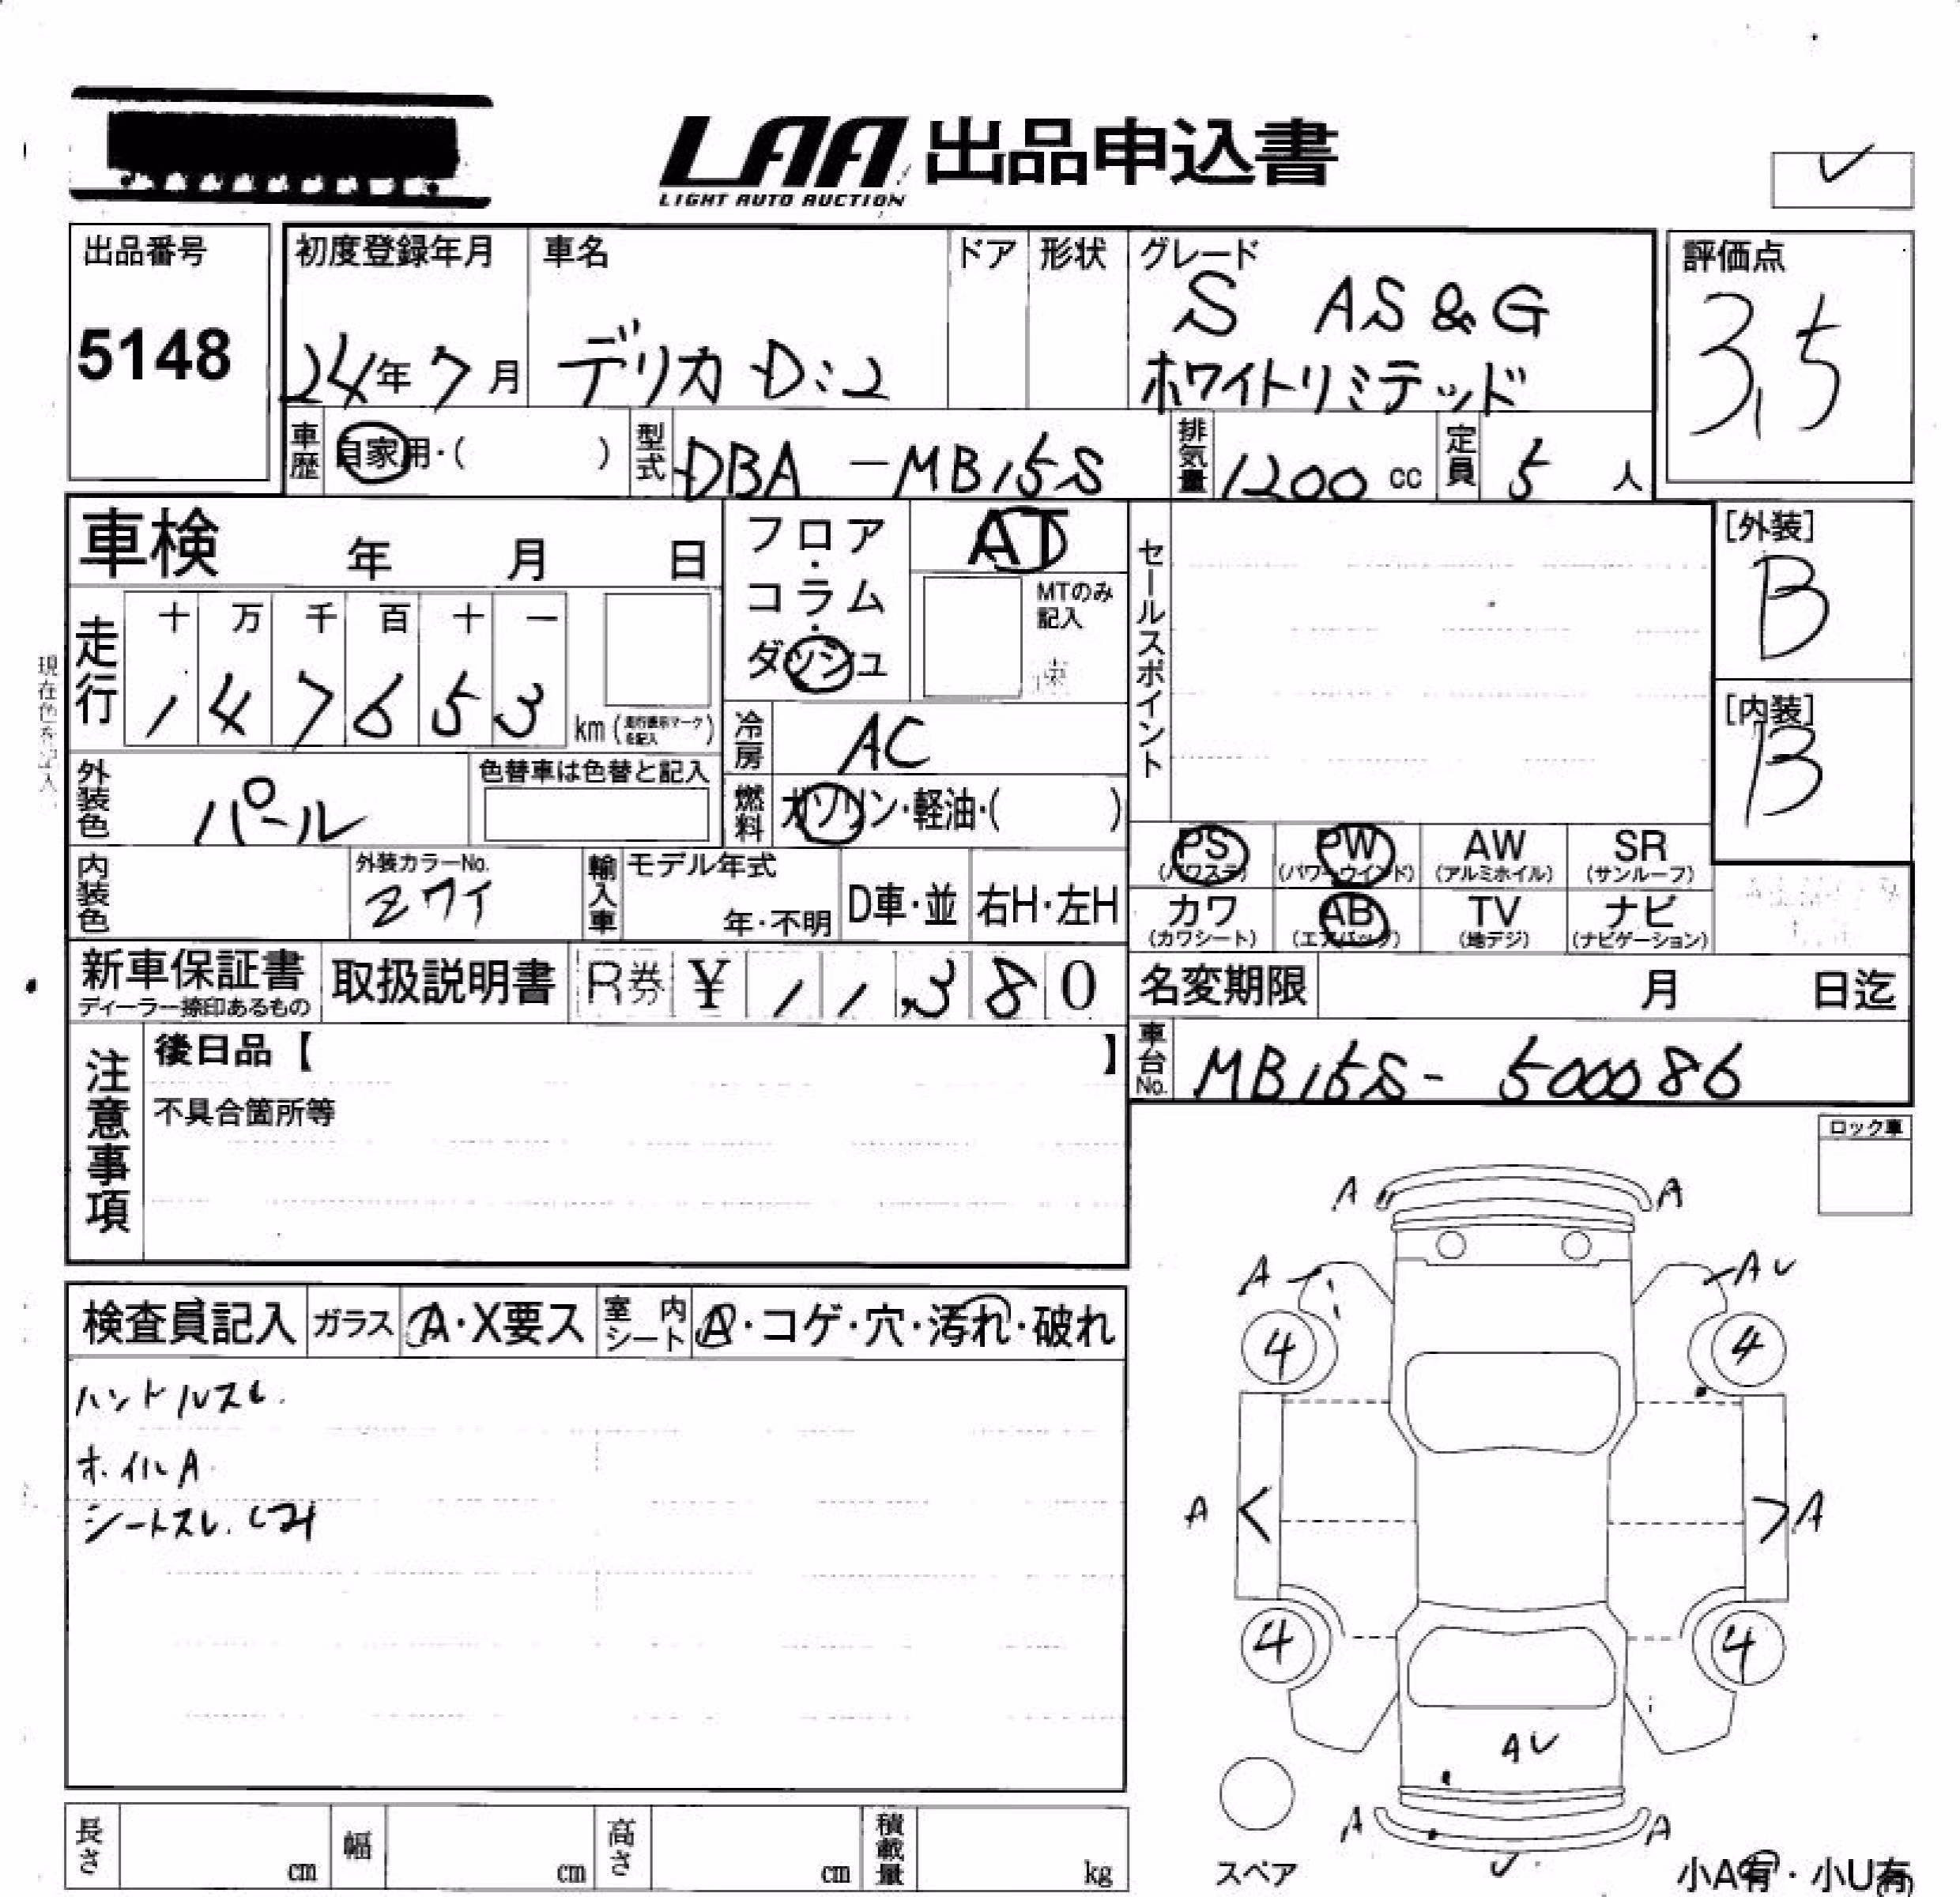 LAA 出品申込書
LIGHT AUTO AUCTION
出品番号
5148
初度登録年月
24年7月
車名
デリカ D:2
ドア
形状
グレード
S AS&G
ホワイトリミテッド
評価点
3.5
車歴 自家用・( )
型式 DBA-MB15S
排気量 1200cc
定員 5人
車検 年 月 日
フロア・コラム・ダッシュ
AT
MTのみ記入
セールスポイント
[外装]
B
[内装]
B
走行
十 万 千 百 十 一
1 4 7 6 5 3
km (走行表示マークを記入)
現在色を記入
冷房 AC
外装色 パール
色替車は色替と記入
燃料 ガソリン・軽油・( )
内装色
外装カラーNo.
Z7T
輸入車
モデル年式
年・不明
D車・並
右H・左H
PS
(パワステ)
PW
(パワーウインド)
AW
(アルミホイル)
SR
(サンルーフ)
カワ
(カワシート)
AB
(エアバッグ)
TV
(地デジ)
ナビ
(ナビゲーション)
新車保証書
ディーラー捺印あるもの
取扱説明書
R券 ¥ 11,380
名変期限 月 日迄
車台No. MB15S-500086
注意事項
後日品【 】
不具合箇所等
ロック車
検査員記入
ガラス A・X要ス
室内シート A・コゲ・穴・汚れ・破れ
ハンドルスレ.
ホイルA
シートスレ.
A A
A AU
4 4
A A
4 4
AU
A A
U
スペア
小A有・小U有
長さ cm
幅 cm
高さ cm
積載量 kg